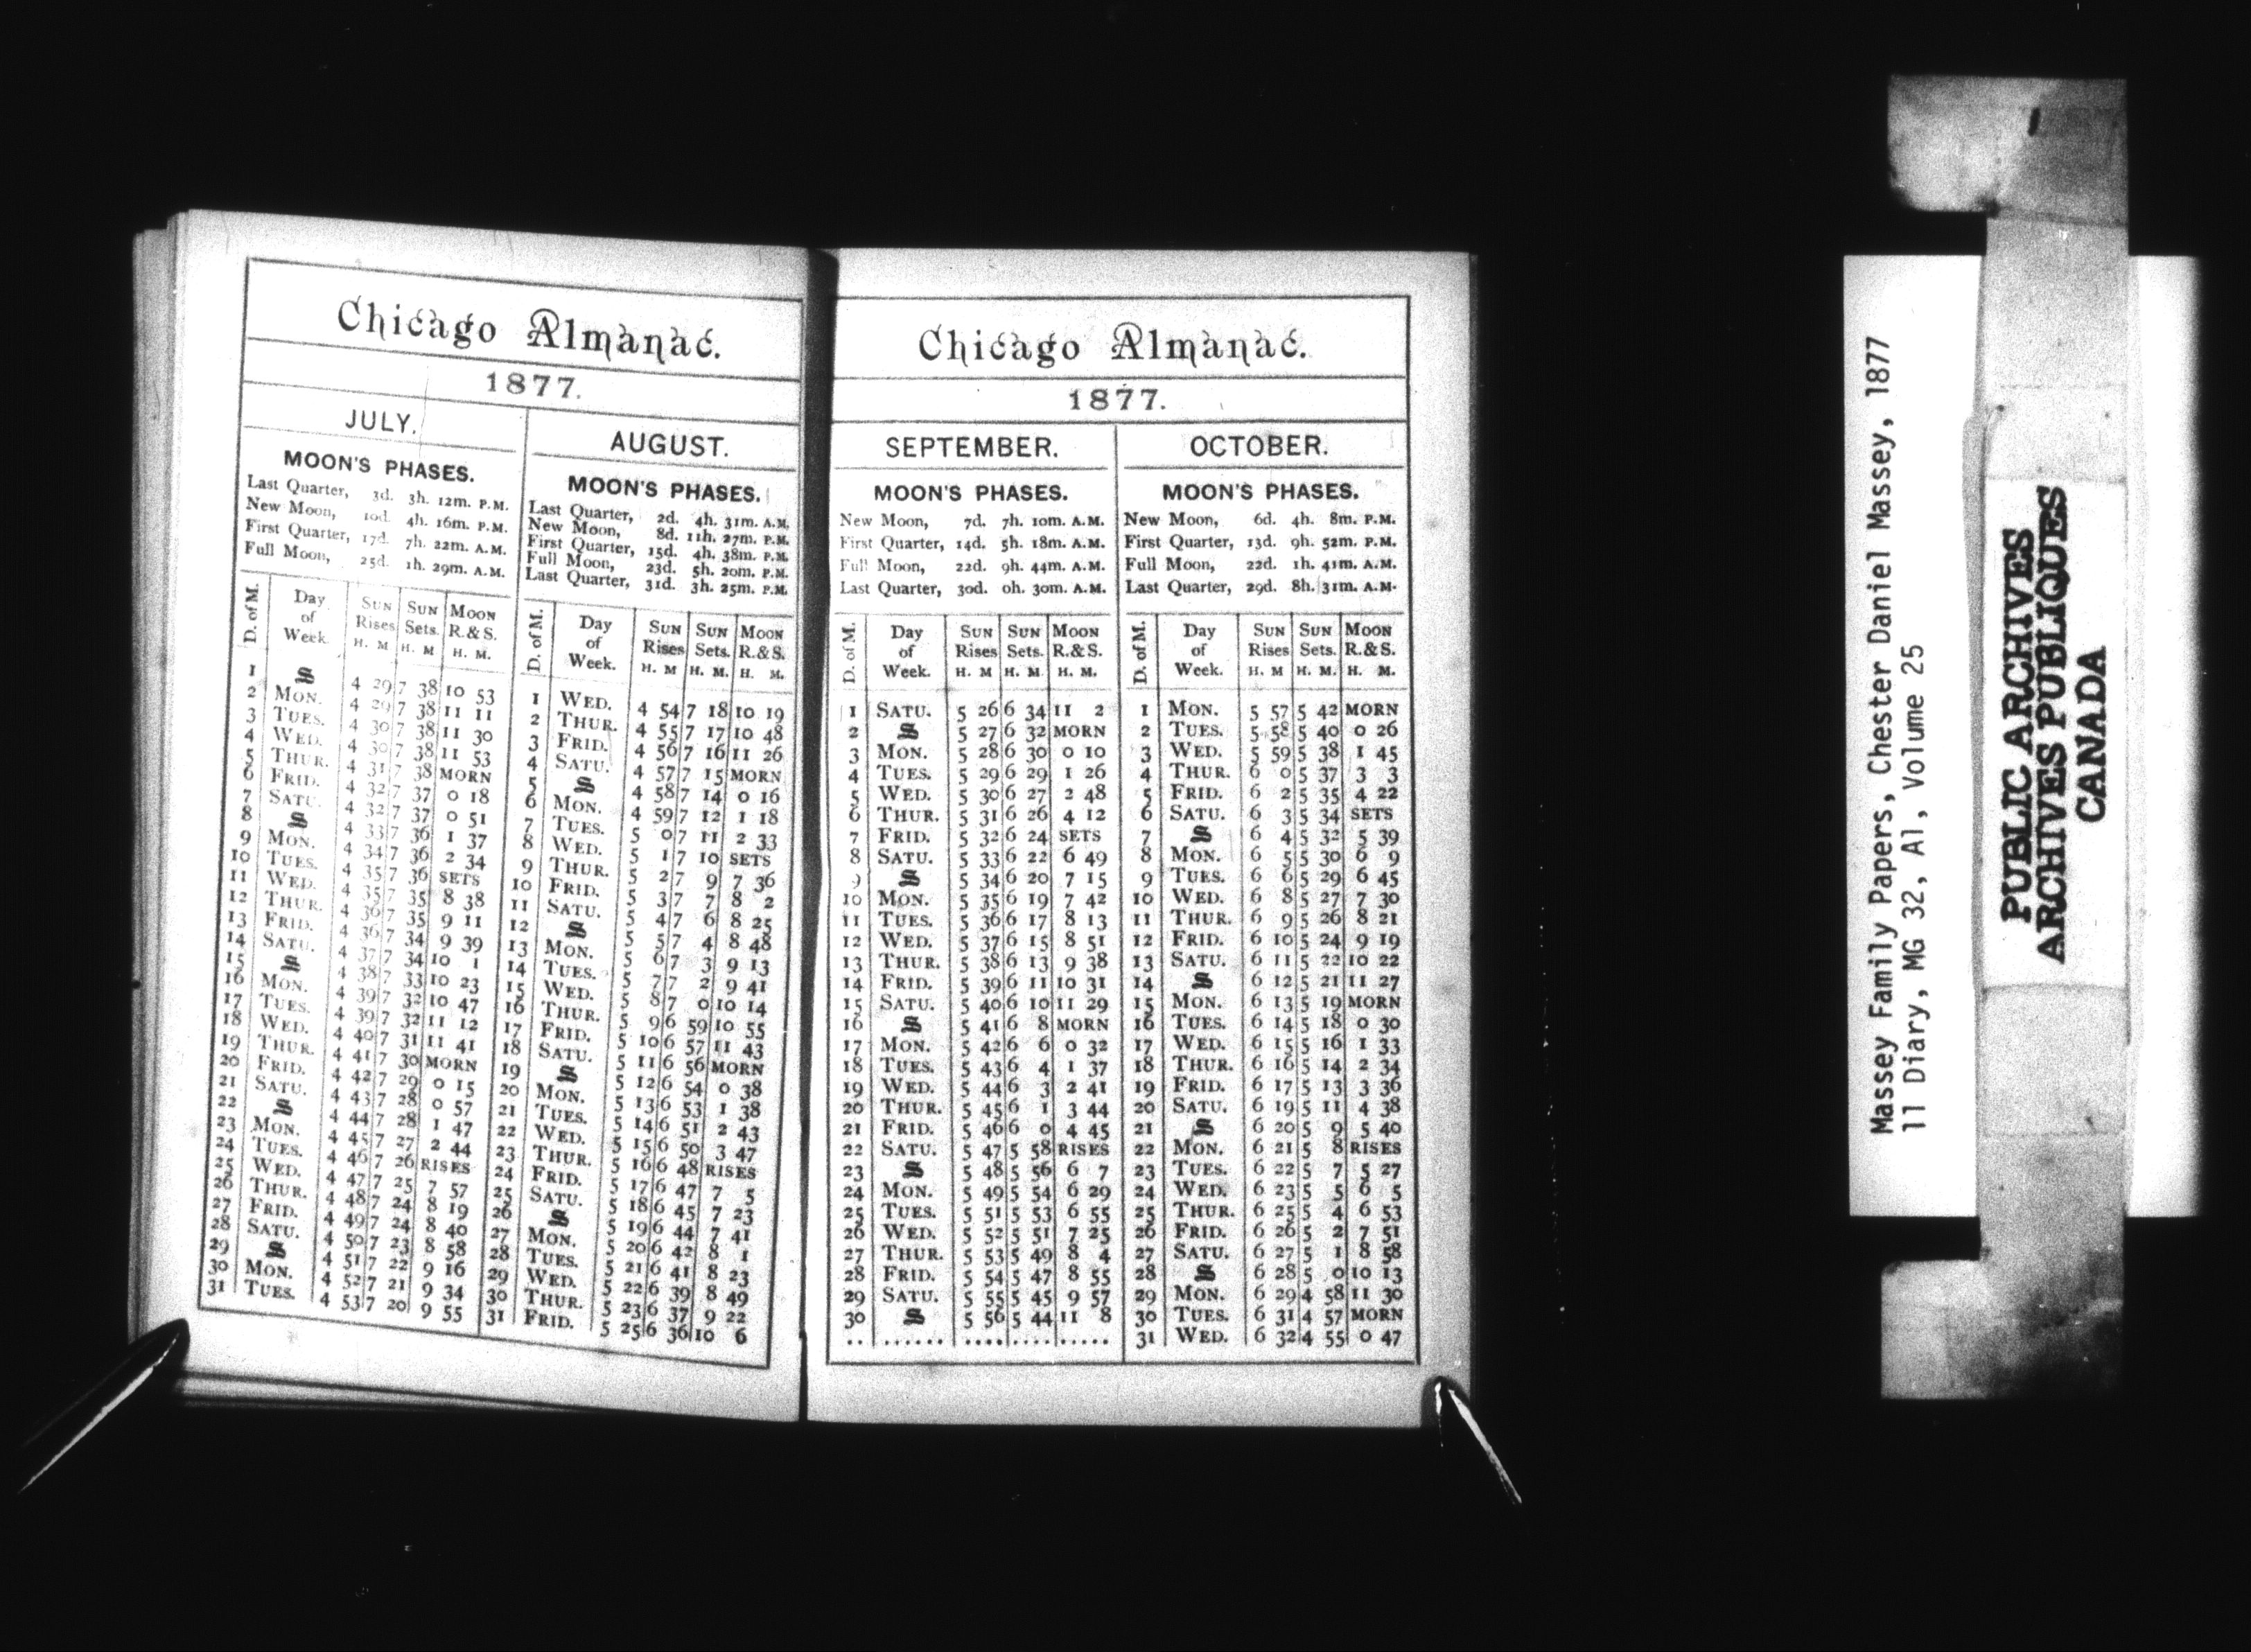 Chicago Almanac.
1877.
JULY.
MOON'S PHASES.
Last Quarter, 3d. 3h. 12m. P.M.
New Moon, 10d. 4h. 16m. P.M.
First Quarter, 17d. 7h. 22m. A.M.
Full Moon, 25d. 1h. 29m. A.M.
D. of M. Day of Week. SUN Rises SUN Sets. MOON R. & S.
H. M H. M H. M.
1 S 4 29 7 38 10 53
2 MON. 4 29 7 38 11 11
3 TUES. 4 30 7 38 11 30
4 WED. 4 30 7 38 11 53
5 THUR. 4 31 7 38 MORN
6 FRID. 4 32 7 37 0 18
7 SATU. 4 32 7 37 0 51
8 S 4 33 7 36 1 37
9 MON. 4 34 7 36 2 34
10 TUES. 4 35 7 36 SETS
11 WED. 4 35 7 35 8 38
12 THUR. 4 36 7 35 9 11
13 FRID. 4 36 7 34 9 39
14 SATU. 4 37 7 34 10 1
15 S 4 38 7 33 10 23
16 MON. 4 39 7 32 10 47
17 TUES. 4 39 7 32 11 12
18 WED. 4 40 7 31 11 41
19 THUR. 4 41 7 30 MORN
20 FRID. 4 42 7 29 0 15
21 SATU. 4 43 7 28 0 57
22 S 4 44 7 28 1 47
23 MON. 4 45 7 27 2 44
24 TUES. 4 46 7 26 RISES
25 WED. 4 47 7 25 7 57
26 THUR. 4 48 7 24 8 19
27 FRID. 4 49 7 24 8 40
28 SATU. 4 50 7 23 8 58
29 S 4 51 7 22 9 16
30 MON. 4 52 7 21 9 34
31 TUES. 4 53 7 20 9 55
AUGUST.
MOON'S PHASES.
Last Quarter, 2d. 4h. 31m. A.M.
New Moon, 8d. 11h. 27m. P.M.
First Quarter, 15d. 4h. 38m. P.M.
Full Moon, 23d. 5h. 20m. P.M.
Last Quarter, 31d. 3h. 25m. P.M.
D. of M. Day of Week. SUN Rises SUN Sets. MOON R. & S.
H. M H. M. H. M.
1 WED. 4 54 7 18 10 19
2 THUR. 4 55 7 17 10 48
3 FRID. 4 56 7 16 11 26
4 SATU. 4 57 7 15 MORN
5 S 4 58 7 14 0 16
6 MON. 4 59 7 12 1 18
7 TUES. 5 0 7 11 2 33
8 WED. 5 1 7 10 SETS
9 THUR. 5 2 7 9 7 36
10 FRID. 5 3 7 7 8 2
11 SATU. 5 4 7 6 8 25
12 S 5 5 7 4 8 48
13 MON. 5 6 7 3 9 13
14 TUES. 5 7 7 2 9 41
15 WED. 5 8 7 0 10 14
16 THUR. 5 9 6 59 10 55
17 FRID. 5 10 6 57 11 43
18 SATU. 5 11 6 56 MORN
19 S 5 12 6 54 0 38
20 MON. 5 13 6 53 1 38
21 TUES. 5 14 6 51 2 43
22 WED. 5 15 6 50 3 47
23 THUR. 5 16 6 48 RISES
24 FRID. 5 17 6 47 7 5
25 SATU. 5 18 6 45 7 23
26 S 5 19 6 44 7 41
27 MON. 5 20 6 42 8 1
28 TUES. 5 21 6 41 8 23
29 WED. 5 22 6 39 8 49
30 THUR. 5 23 6 37 9 22
31 FRID. 5 25 6 36 10 6
Chicago Almanac.
1877.
SEPTEMBER.
MOON'S PHASES.
New Moon, 7d. 7h. 10m. A.M.
First Quarter, 14d. 5h. 18m. A.M.
Full Moon, 22d. 9h. 44m. A.M.
Last Quarter, 30d. 0h. 30m. A.M.
D. of M. Day of Week. SUN Rises SUN Sets. MOON R. & S.
H. M H. M. H. M.
1 SATU. 5 26 6 34 11 2
2 S 5 27 6 32 MORN
3 MON. 5 28 6 30 0 10
4 TUES. 5 29 6 29 1 26
5 WED. 5 30 6 27 2 48
6 THUR. 5 31 6 26 4 12
7 FRID. 5 32 6 24 SETS
8 SATU. 5 33 6 22 6 49
9 S 5 34 6 20 7 15
10 MON. 5 35 6 19 7 42
11 TUES. 5 36 6 17 8 13
12 WED. 5 37 6 15 8 51
13 THUR. 5 38 6 13 9 38
14 FRID. 5 39 6 11 10 31
15 SATU. 5 40 6 10 11 29
16 S 5 41 6 8 MORN
17 MON. 5 42 6 6 0 32
18 TUES. 5 43 6 4 1 37
19 WED. 5 44 6 3 2 41
20 THUR. 5 45 6 1 3 44
21 FRID. 5 46 6 0 4 45
22 SATU. 5 47 5 58 RISES
23 S 5 48 5 56 6 7
24 MON. 5 49 5 54 6 29
25 TUES. 5 51 5 53 6 55
26 WED. 5 52 5 51 7 25
27 THUR. 5 53 5 49 8 4
28 FRID. 5 54 5 47 8 55
29 SATU. 5 55 5 45 9 57
30 S 5 56 5 44 11 8
OCTOBER.
MOON'S PHASES.
New Moon, 6d. 4h. 8m. P.M.
First Quarter, 13d. 9h. 52m. P.M.
Full Moon, 22d. 1h. 41m. A.M.
Last Quarter, 29d. 8h. 31m. A.M.
D. of M. Day of Week. SUN Rises SUN Sets. MOON R. & S.
H. M H. M. H. M.
1 MON. 5 57 5 42 MORN
2 TUES. 5 58 5 40 0 26
3 WED. 5 59 5 38 1 45
4 THUR. 6 0 5 37 3 3
5 FRID. 6 2 5 35 4 22
6 SATU. 6 3 5 34 SETS
7 S 6 4 5 32 5 39
8 MON. 6 5 5 30 6 9
9 TUES. 6 6 5 29 6 45
10 WED. 6 8 5 27 7 30
11 THUR. 6 9 5 26 8 21
12 FRID. 6 10 5 24 9 19
13 SATU. 6 11 5 22 10 22
14 S 6 12 5 21 11 27
15 MON. 6 13 5 19 MORN
16 TUES. 6 14 5 18 0 30
17 WED. 6 15 5 16 1 33
18 THUR. 6 16 5 14 2 34
19 FRID. 6 17 5 13 3 36
20 SATU. 6 19 5 11 4 38
21 S 6 20 5 9 5 40
22 MON. 6 21 5 8 RISES
23 TUES. 6 22 5 7 5 27
24 WED. 6 23 5 5 6 5
25 THUR. 6 25 5 4 6 53
26 FRID. 6 26 5 2 7 51
27 SATU. 6 27 5 1 8 58
28 S 6 28 5 0 10 13
29 MON. 6 29 4 58 11 30
30 TUES. 6 31 4 57 MORN
31 WED. 6 32 4 55 0 47
Massey Family Papers, Chester Daniel Massey, 1877
11 Diary, MG 32, A1, Volume 25
PUBLIC ARCHIVES
ARCHIVES PUBLIQUES
CANADA